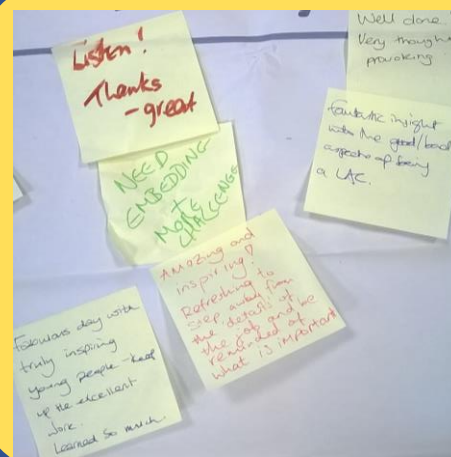 Listen!
Thanks
- great
Well done
Very though
provoking
Fantastic insight
into the good/bad
aspects of being
a LAC.
NEED
EMBEDDING
+
MORE
CHALLENGE
Amazing and
inspiring!
Refreshing to
step away from
the details of
the job and be
reminded of
what is important
Fabulous day with
truly inspiring
young people - keep
up the excellent
work.
Learned so much.